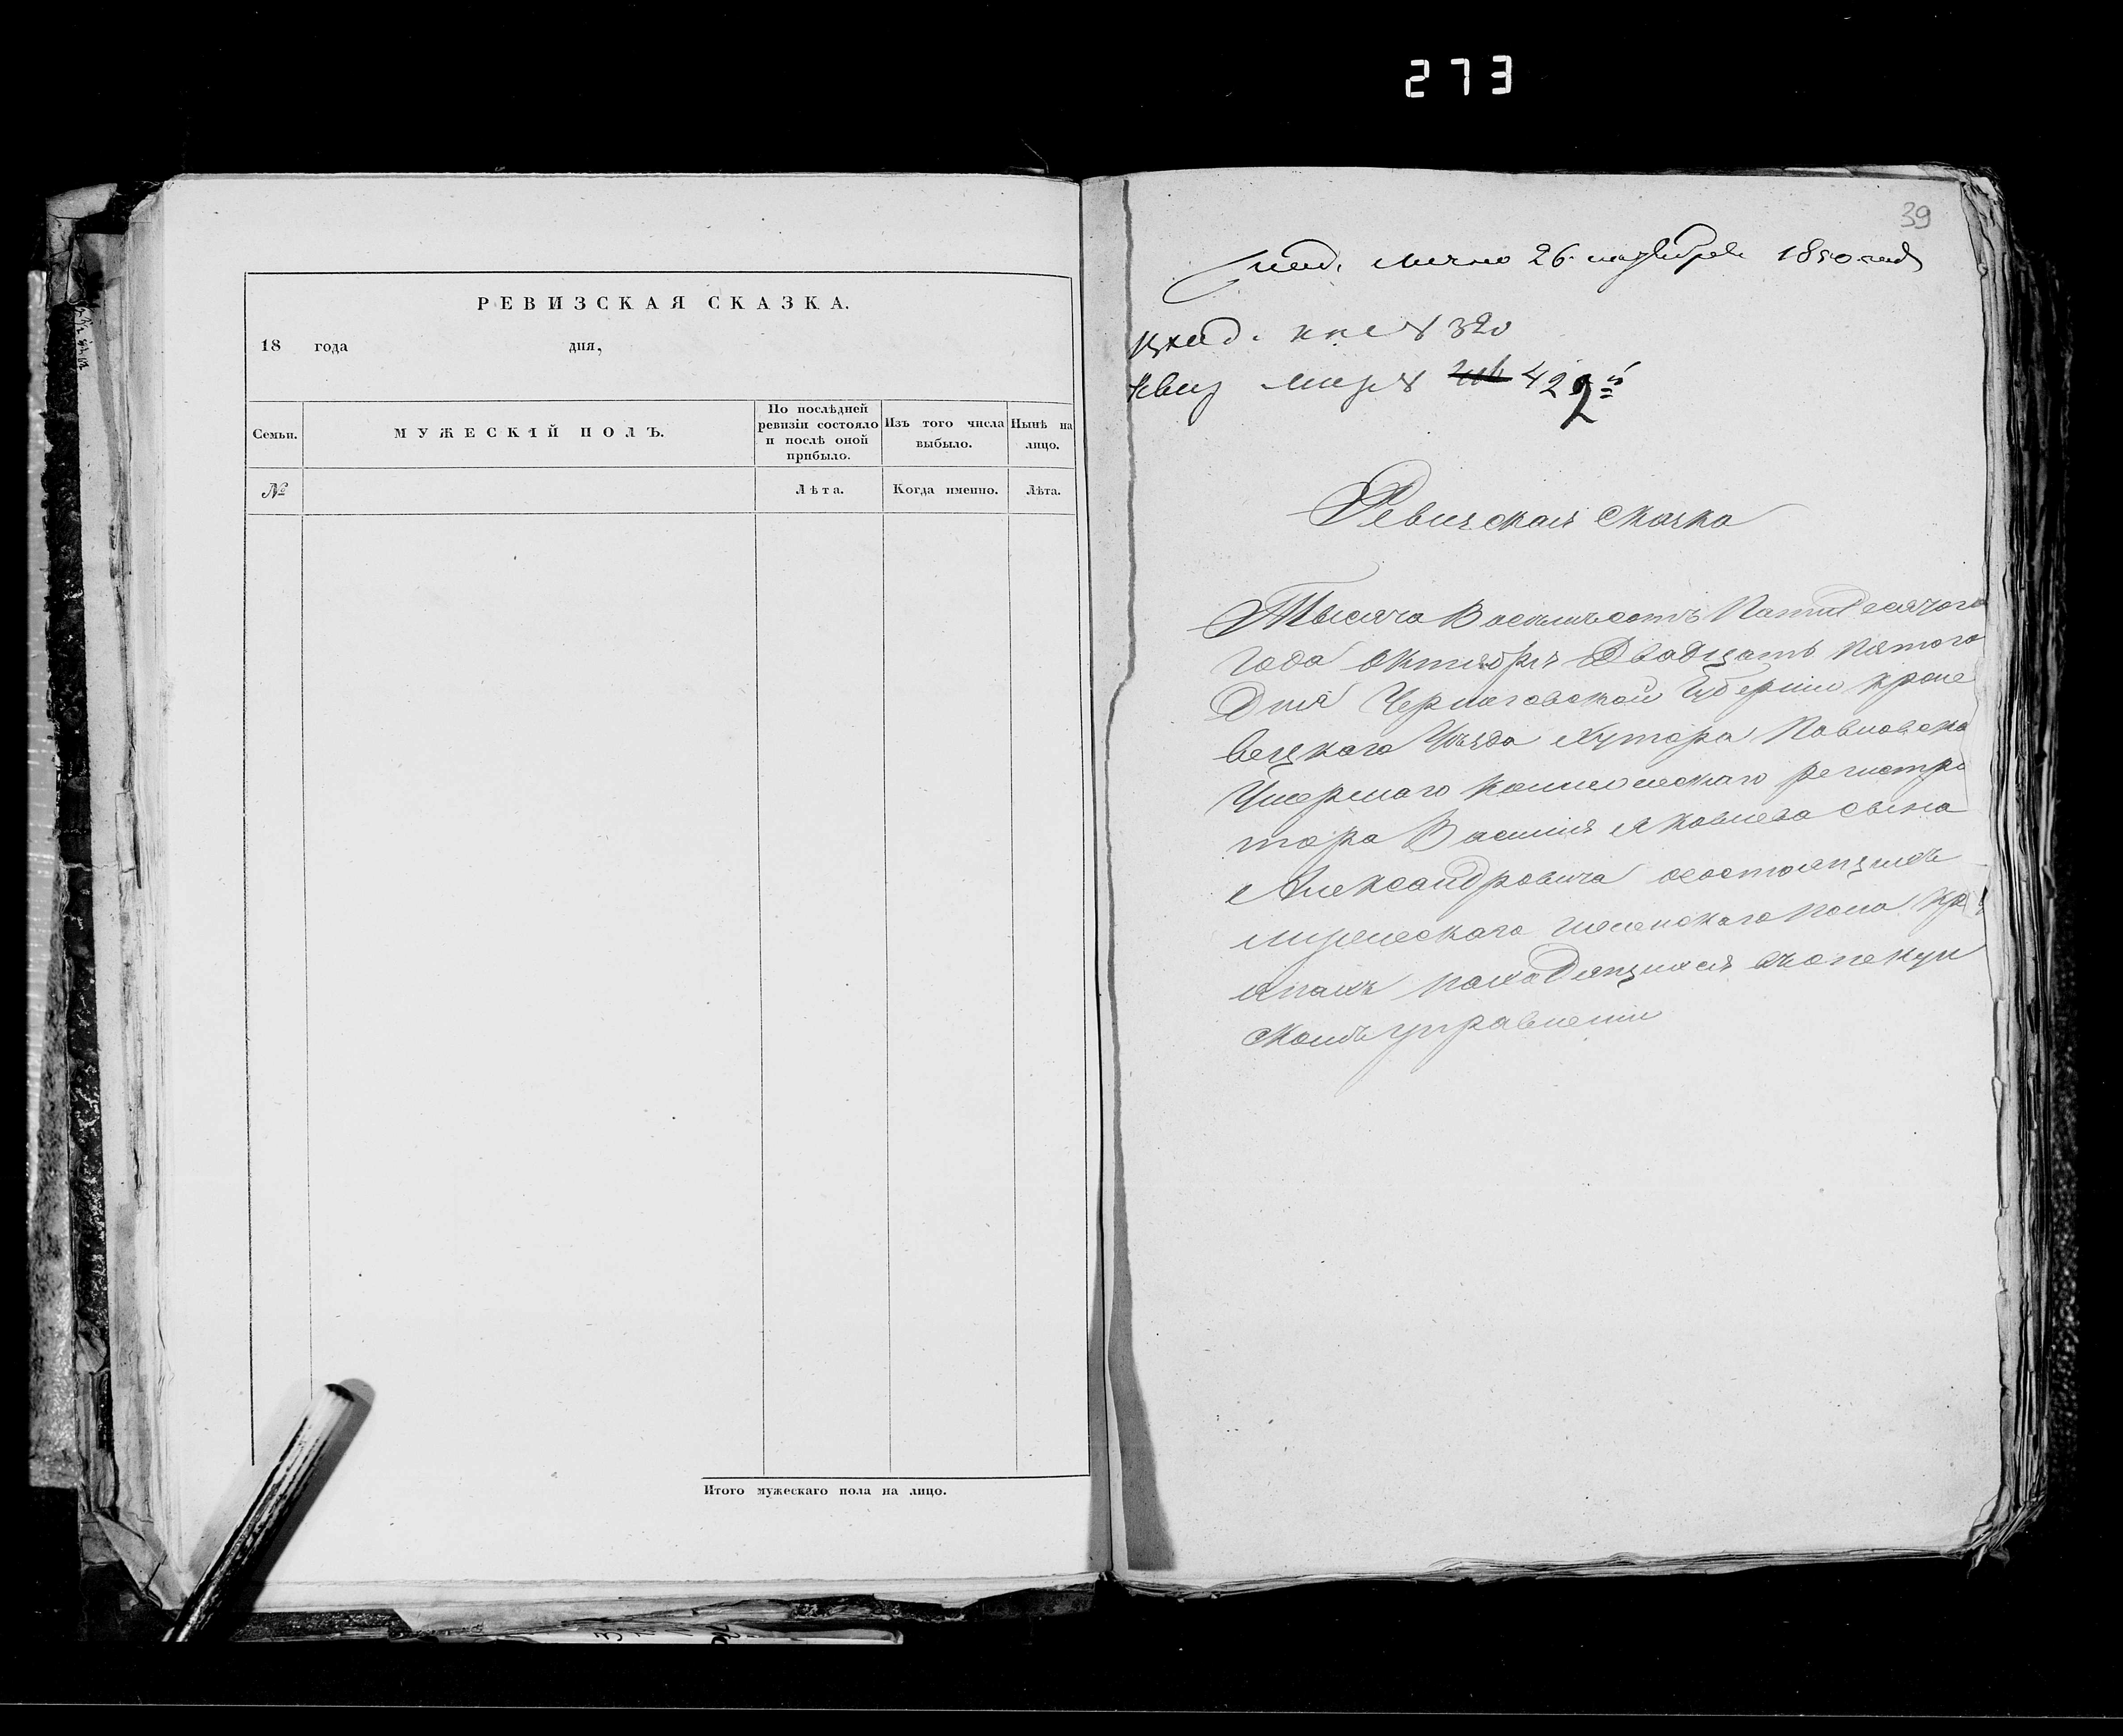 273
РЕВИЗСКАЯ СКАЗКА.
18 года дня,
Семьи.
МУЖЕСКІЙ ПОЛЪ.
По послѣдней
ревизіи состояло
и послѣ оной
прибыло.
Изъ того числа
выбыло.
Нынѣ на
лицо.
№
Лѣта.
Когда именно.
Лѣта.
Итого мужескаго пола на лицо.
39
лично 26 1850
320
422
Ревизская сказка
Тысяча Восемьсотъ Пятидесятого
года октября Двадцать пятого
Дня Черниговской Губерніи Кроле
вецкого Уѣзда Хутора
Умершаго коллежскаго регистра
тора Василія Яковлева сына
Александровича состоящимъ
женского пола кре
находящихся въ опекун
скомъ управленіи